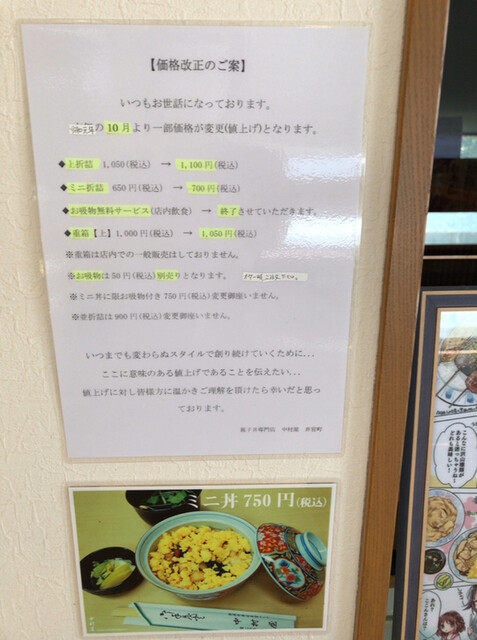 【価格改正のご案】
いつもお世話になっております。
の10月より一部価格が変更(値上げ)となります。
◆上折詰 1,050(税込) → 1,100円(税込)
◆ミニ折詰 650円(税込) → 700円(税込)
◆お吸物無料サービス(店内飲食) → 終了させていただきます。
◆重箱【上】1,000円(税込) → 1,050円(税込)
※重箱は店内での一般販売はしておりません。
※お吸物は50円(税込)別売りとなります。
※ミニ丼に限お吸物付き750円(税込)変更御座いません。
※並折詰は900円(税込)変更御座いません。
いつまでも変わらぬスタイルで創り続けていくために...
ここに意味のある値上げであることを伝えたい...
値上げに対し皆様方に温かきご理解を頂けたら幸いだと思っ
ております。
親子丼専門店 中村屋
ニ丼750円(税込)
中村屋
こんなに沢山種類が
あると迷っちゃうね~
どれも美味しい!